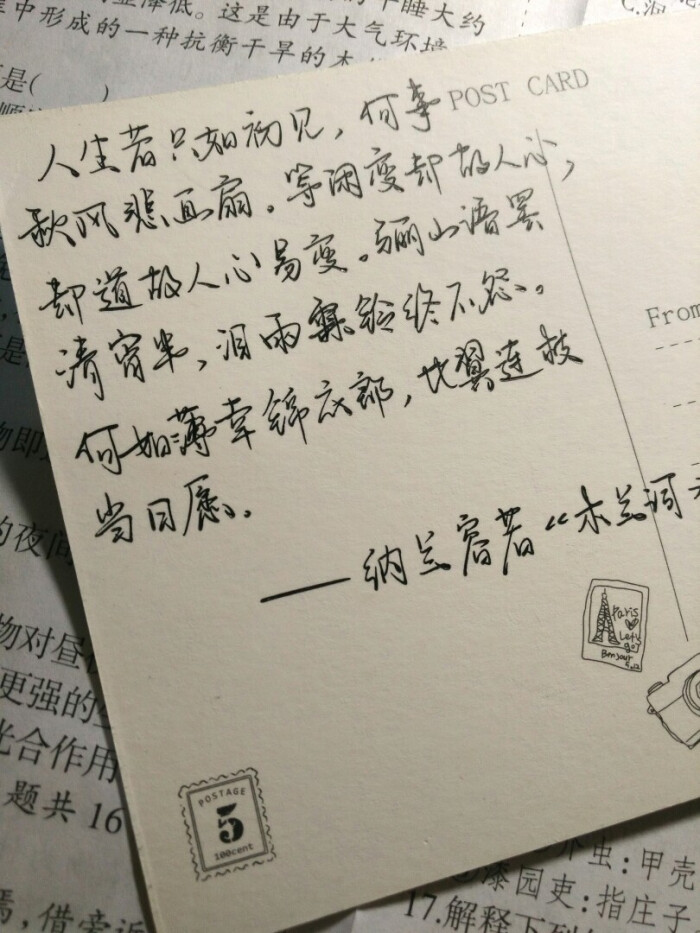 午睡大约
显降低。这是由于大气环境
中形成的一种抗衡干旱的
是(　　)
人生若只如初见，何事
POST CARD
秋风悲画扇。等闲变却故人心，
却道故人心易变。骊山语罢
清宵半，泪雨霖铃终不怨。
何如薄幸锦衣郎，比翼连枝
当日愿。
——纳兰容若“木兰词
From
Paris
Let's
go!
Bonjour
POSTAGE
5
100cent
物即
的夜间
物对昼
更强的
光合作用
题共 16
焉，借旁近
介虫:甲壳
漆园吏:指庄子
17.解释下列